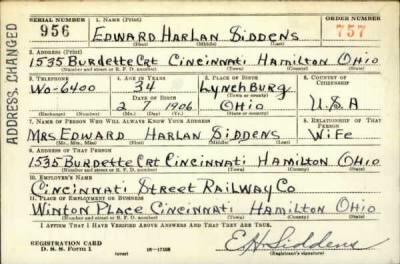 SERIAL NUMBER 1. NAME (Print) ORDER NUMBER
956 EDWARD HARLAN SIDDENS 757
(First) (Middle) (Last)
ADDRESS CHANGED
2. ADDRESS (Print)
1535 Burdette Crt Cincinnati Hamilton Ohio
(Number and street or R. F. D. number) (Town) (County) (State)
3. TELEPHONE 4. AGE IN YEARS 5. PLACE OF BIRTH 6. COUNTRY OF CITIZENSHIP
Wo-6400 34 Lynchburg
DATE OF BIRTH (Town or county)
2 7 1906 Ohio U.S.A
(Exchange) (Number) (Mo.) (Day) (Yr.) (State or country)
7. NAME OF PERSON WHO WILL ALWAYS KNOW YOUR ADDRESS 8. RELATIONSHIP OF THAT PERSON
MRS EDWARD HARLAN SIDDENS WIFE
(Mr., Mrs., Miss) (First) (Middle) (Last)
9. ADDRESS OF THAT PERSON
1535 Burdette Crt Cincinnati Hamilton Ohio
(Number and street or R. F. D. number) (Town) (County) (State)
10. EMPLOYER'S NAME
Cincinnati Street Railway Co
11. PLACE OF EMPLOYMENT OR BUSINESS
Winton Place Cincinnati Hamilton Ohio
(Number and street or R. F. D. number) (Town) (County) (State)
I AFFIRM THAT I HAVE VERIFIED ABOVE ANSWERS AND THAT THEY ARE TRUE.
REGISTRATION CARD
D. S. S. Form 1 (over) 16-17105 E H Siddens
(Registrant's signature)